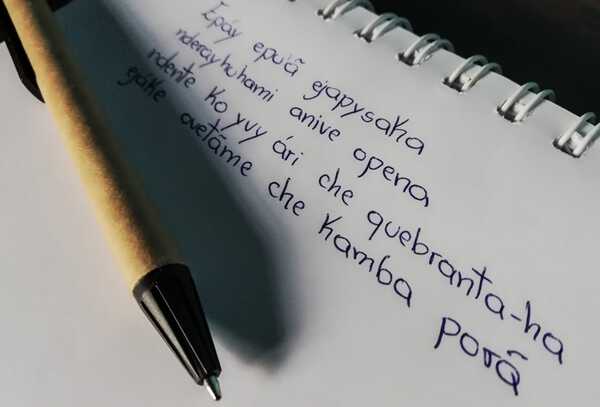 Epáy epu'ã ejapysaka
nderayhuhami anive opena
ndente ko yvy ári che quebranta-ha
gáke avetãme che kamba porã